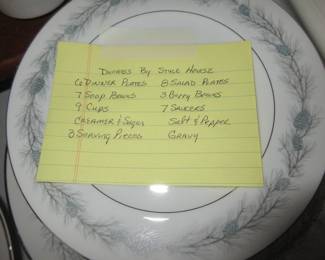 Duchess By Style House
6 Dinner Plates 8 Salad Plates
7 Soup Bowls 3 Berry Bowls
9 Cups 7 Saucers
Creamer & Sugar Salt & Pepper
3 Serving Pieces Gravy